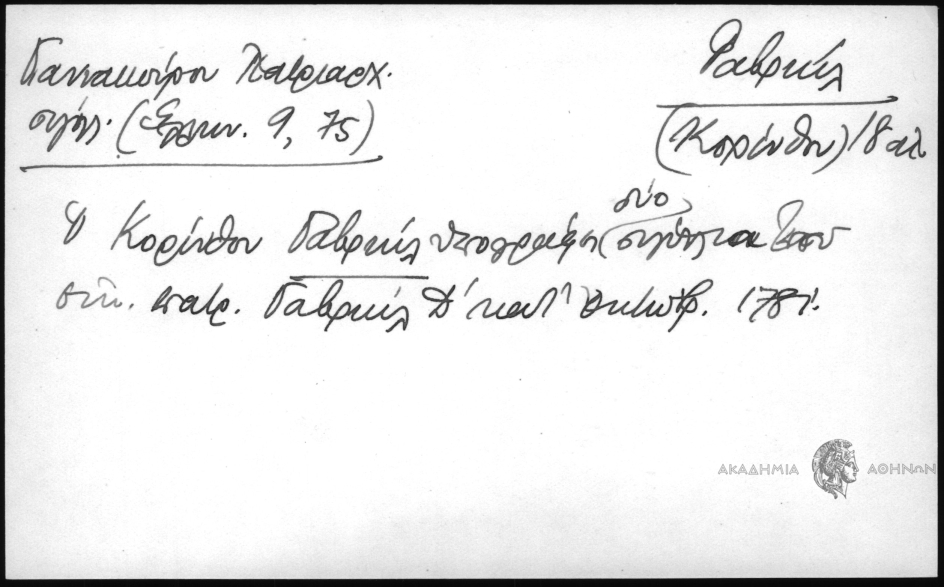 Γιαννακοπούλου Πατριαρχ.
σιγίλ. (Ελλην. 9, 75)
Γαβριήλ
(Κορίνθου) 18 αι.
Ο Κορίνθου Γαβριήλ υπογράφει δύο σιγίλλια του
οικ. πατρ. Γαβριήλ Δ' κατ' Οκτώβρ. 1781.
ΑΚΑΔΗΜΙΑ ΑΘΗΝΩΝ